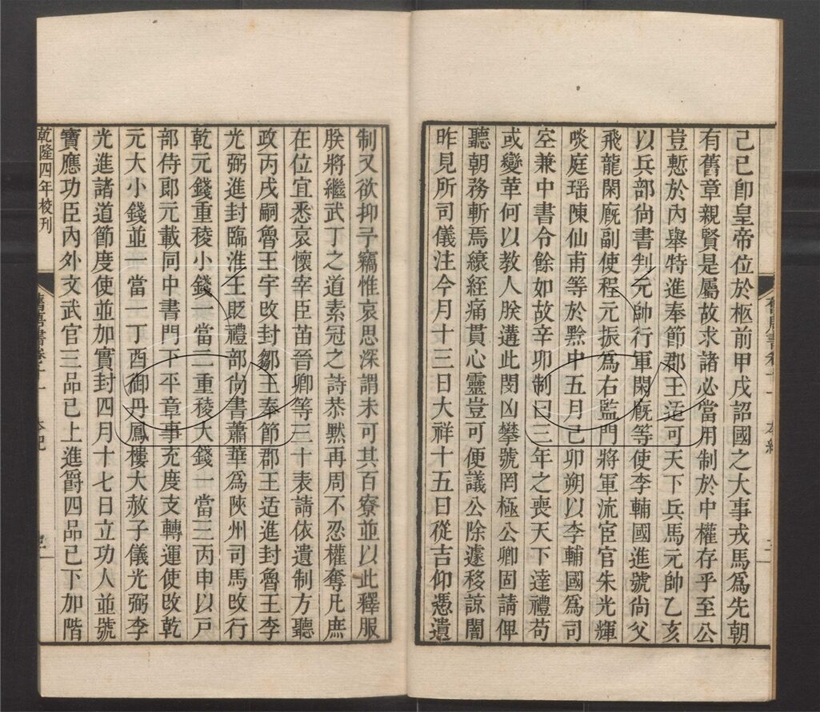 己巳卽皇帝位於柩前甲戌詔國之大事戎馬爲先朝
有舊章親賢是屬故求諸必當用制於中權存乎至公
豈慙於內舉特進奉節郡王适可天下兵馬元帥乙亥
以兵部尙書判元帥行軍閑廄等使李輔國進號尙父
飛龍閑廄副使程元振爲右監門將軍流宦官朱光輝
啖庭瑶陳仙甫等於黔中五月己卯朔以李輔國爲司
空兼中書令餘如故辛卯制曰三年之喪天下達禮苟
或變革何以教人朕遘此閔凶攀號罔極公卿固請俾
聽朝務斬焉縗絰痛貫心靈豈可便議公除遽移諒闇
昨見所司儀注今月十三日大祥十五日從吉仰憑遺
制又欲抑予竊惟哀思深謂未可其百寮並以此釋服
朕將繼武丁之道素冠之詩恭默再周不忍權奪凡庶
在位宜悉哀懷宰臣苗晉卿等三十表請依遺制方聽
政丙戌嗣魯王宇改封鄒王奉節郡王适進封魯王李
光弼進封臨淮王貶禮部尙書蕭華爲陝州司馬改行
乾元錢重稜小錢一當二重稜大錢一當三丙申以戸
部侍郎元載同中書門下平章事充度支轉運使改乾
元大小錢並一當一丁酉御丹鳳樓大赦子儀光弼李
光進諸道節度使並加實封四月十七日立功人並號
寶應功臣內外文武官三品已上進爵四品已下加階
乾隆四年校刋
舊唐書卷十一
本紀